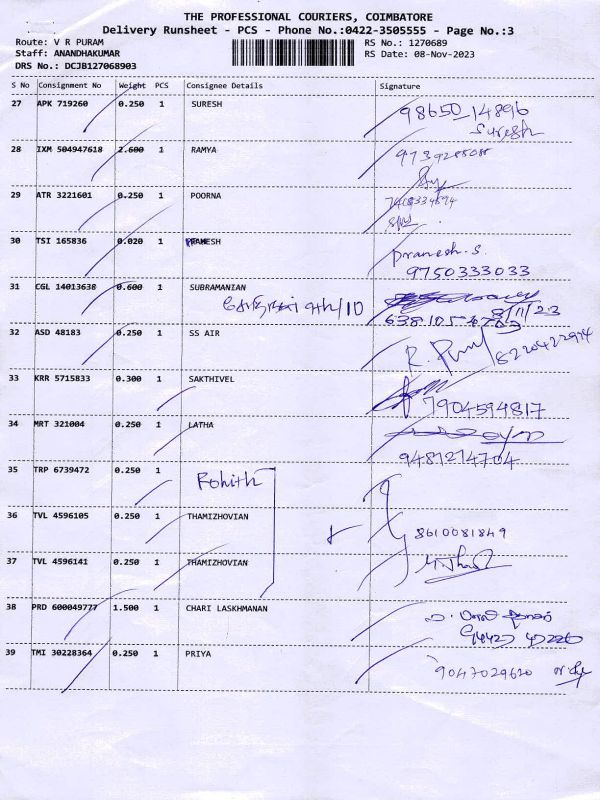 THE PROFESSIONAL COURIERS, COIMBATORE
Delivery Runsheet - PCS - Phone No.:0422-3505555 - Page No.:3
Route: V R PURAM
Staff: ANANDHAKUMAR
DRS No.: DCJB127068903
RS No.: 1270689
RS Date: 08-Nov-2023
S No Consignment No Weight PCS Consignee Details Signature
27 APK 719260 0.250 1 SURESH 98650 14896
Suresh
28 IXM 504947618 2.600 1 RAMYA
29 ATR 3221601 0.250 1 POORNA
30 TSI 165836 0.020 1 pranesh.s.
9750333033
31 CGL 14013638 0.600 1 SUBRAMANIAN
8/11/23
32 ASD 48183 0.250 1 SS AIR
33 KRR 5715833 0.300 1 SAKTHIVEL
7904594817
34 MRT 321004 0.250 1 LATHA
9481214704
35 TRP 6739472 0.250 1 Rohith
36 TVL 4596105 0.250 1 THAMIZHOVIAN
8610081849
37 TVL 4596141 0.250 1 THAMIZHOVIAN
38 PRD 600049777 1.500 1 CHARI LASKHMANAN
39 TMI 30228364 0.250 1 PRIYA
9047029620